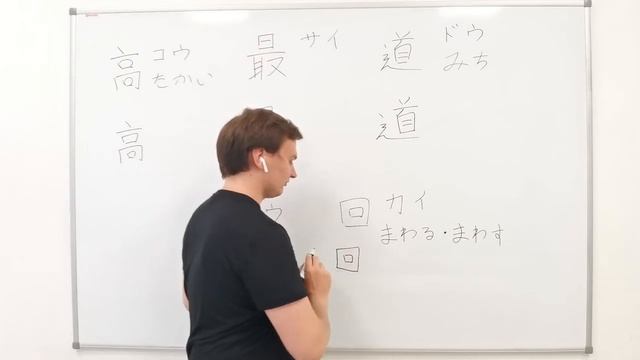 高 コウ
たかい
最 サイ
道 ドウ
みち
高
道
ウ
回 カイ
まわる・まわす
回